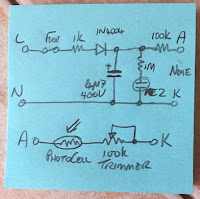 L Fuse 1k 1N4004 100k A
+ 1M NOTE
4µ7
400V NE2
N K
A K
PHOTOCELL 100K
TRIMMER